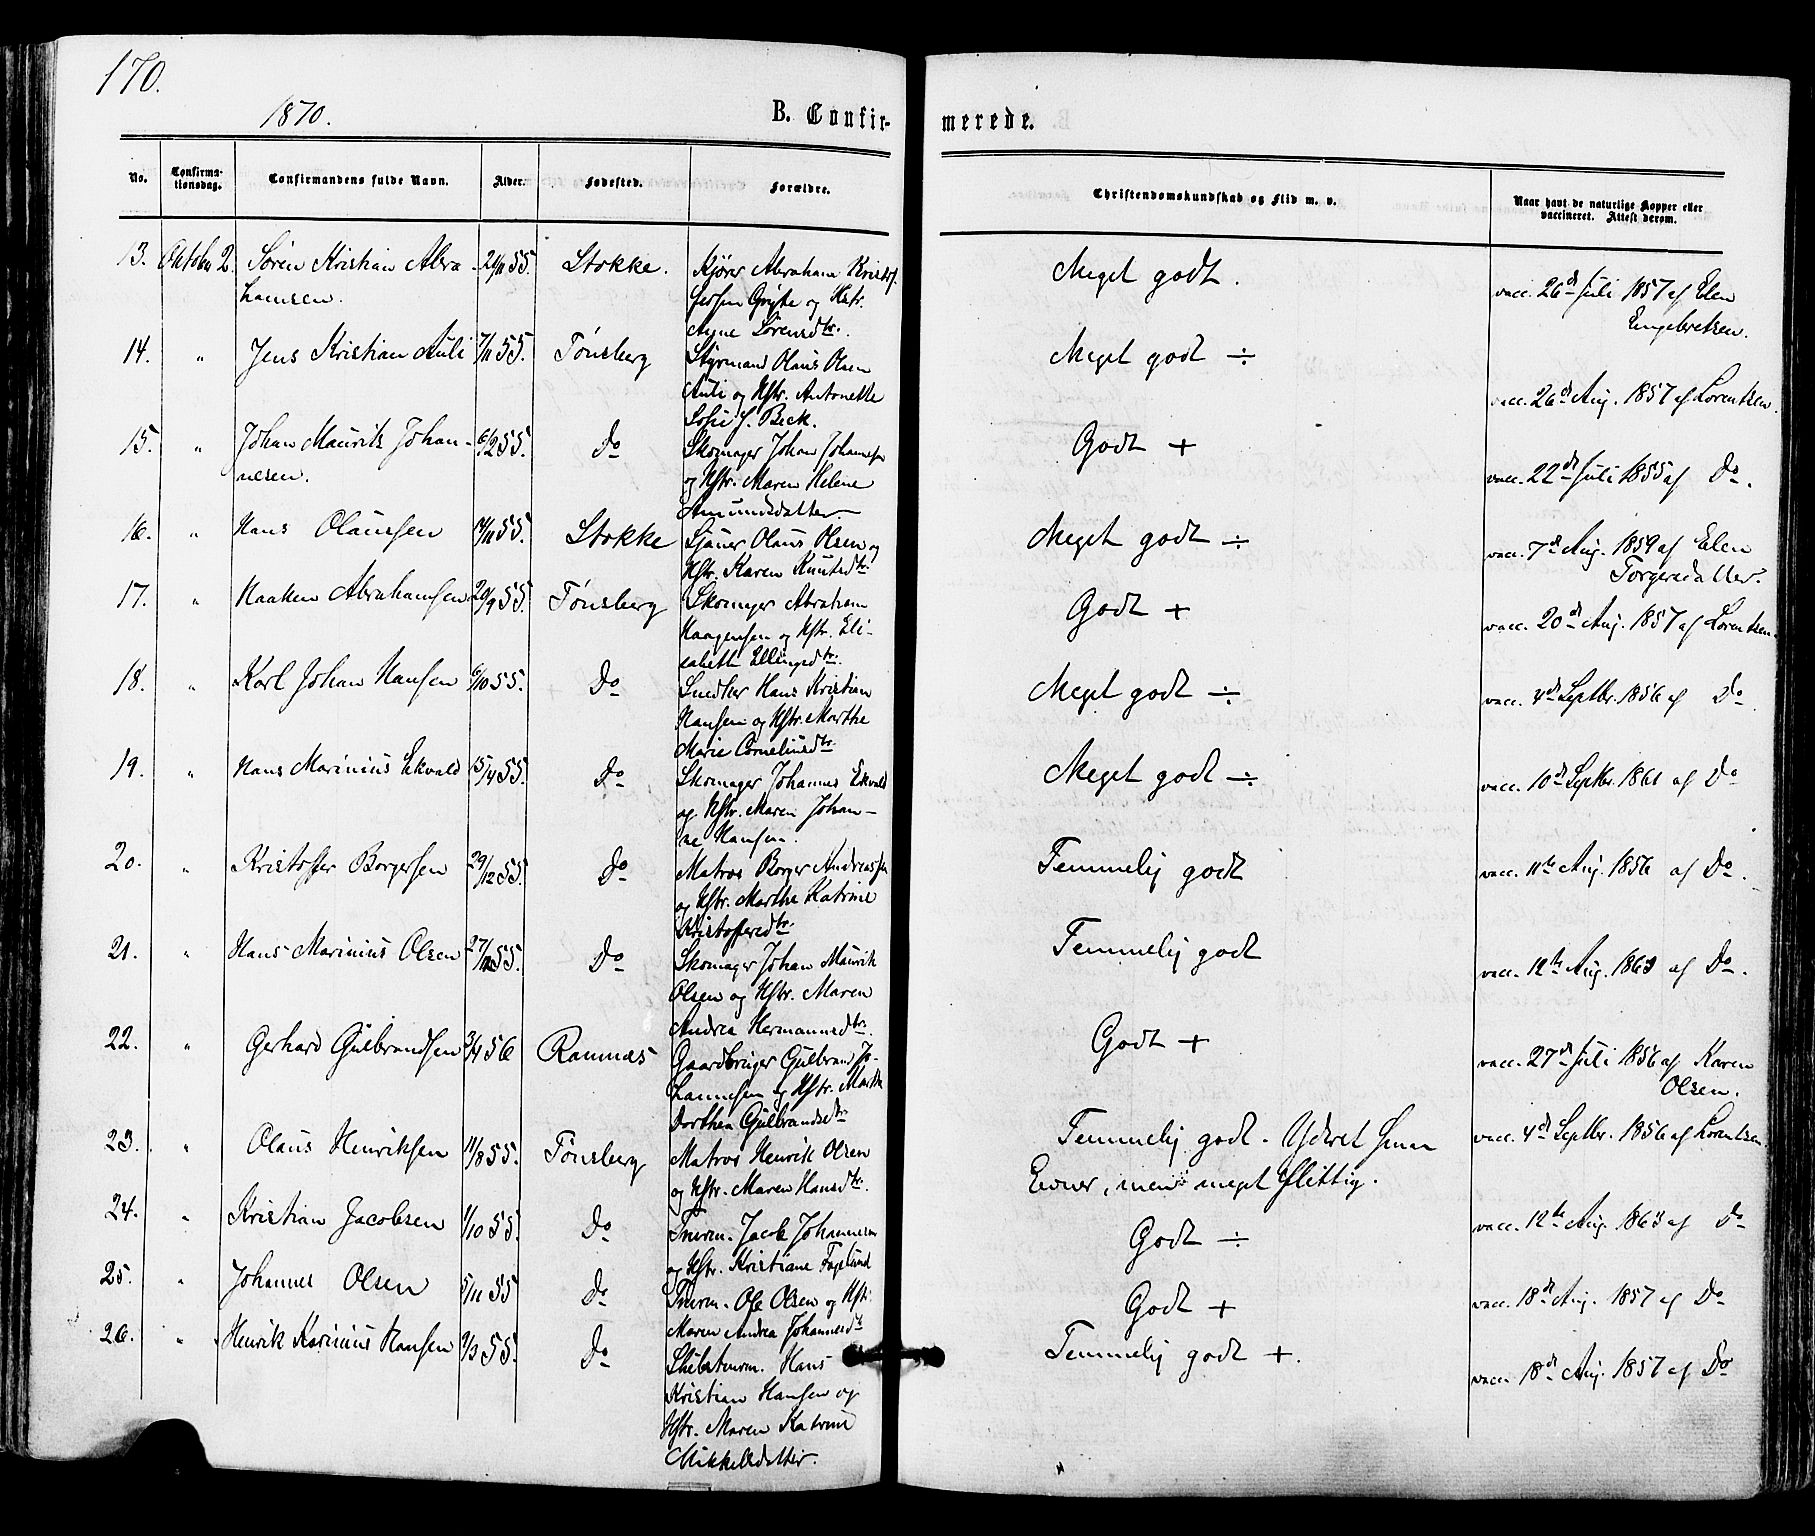 170.
1870.
B. Confir-
merede.
No.
Confirma-
tionsdag.
Confirmandens fulde Navn.
Alder.
Fødested.
Forældre.
Christendomskundskab og Flid m. v.
Naar havt de naturlige Kopper eller
vaccineret. Attest derom.
13. Oktober 2. Søren Kristian Abra- 55. Stokke. Abraham Kristof- Meget godt. vacc. 26de Juli 1857 af Elen
hamsen. fersen og Hstr. Engebretsen.
Sørensdtr.
14. " Jens Kristian Auli 7/11 55. Tønsberg Styrmand Olaus Olsen Meget godt ÷ vacc. 26de Aug. 1857 af Lorentzen.
Auli og Hstr. Antonette
Sofie J. Beck.
15. " Johan Mauritz Johan- 6/2 55. Do Skomager Johan Johannesen Godt + vacc. 22de Juli 1855 af Do.
nesen. og Hstr. Maren Helene
Amundsdatter.
16. " Hans Olaussen 14/11 55. Stokke Sjauer Olaus Olsen og Meget godt ÷ vacc. 7de Aug. 1859 af Elen
Hstr. Karen Knutsdtr. Torgersdatter.
17. " Haaken Abrahamsen 20/9 55. Tønsberg Skomager Abraham Godt + vacc. 20de Aug. 1857 af Lorentzen.
Haagensen og Hstr. Eli-
sabeth Ellingsdtr.
18. " Karl Johan Hansen 6/10 55. Do Snedker Hans Kristian Meget godt ÷ vacc. 4de Septbr. 1856 af Do
Hansen og Hstr. Marthe
Marie Corneliusdtr.
19. " Hans Marinius Ekvald 15/4 55. Do Skomager Johannes Ekvald Meget godt ÷ vacc. 10de Septbr. 1861 af Do
og Hstr. Maren Johan-
ne Hansen.
20. " Kristoffer Borgersen 29/12 55. Do Matros Borger Andreassen Temmelig godt vacc. 11te Aug. 1856 af Do.
og Hstr. Marthe Katrine
Kristoffersdtr.
21. " Hans Marinius Olsen 55. Do Skomager Johan Maurik Temmelig godt vacc. 12te Aug. 1863 af Do.
Olsen og Hstr. Maren
Andrea Hermansdtr.
22. " Gerhard Gulbrandsen 3/4 56 Ramnæs Gaardbruger Gulbran Jo- Godt + vacc. 27de Juli 1856 af Karen
hannesen og Hstr. Marthe Olsen.
Dorthea Gulbrandsdtr.
23. " Olaus Henriksen 11/8 55. Tønsberg Matros Henrik Olsen Temmelig godt. Yderst smaa vacc. 4de Septbr. 1856 af Lorentzen.
og Hstr. Maren Hansdtr. Evner, men meget flittig.
24. " Kristian Jacobsen 1/10 55. Do Tmrm. Jacob Johannesen Godt ÷ vacc. 12te Aug. 1863 af Do
og Hstr. Kristiane Fagelund
25. " Johannes Olsen 5/11 55 Do Tmrm. Ole Olsen og Hstr. Godt + vacc. 18de Aug. 1857 af Do
Maren Andrea Johannesdtr
26. " Henrik Karinius Hansen 2/3 55. Do Skibstmrm. Hans Temmelig godt +. vacc. 18de Aug. 1857 af Do
Kristian Hansen og
Hstr. Maren Katrine
Mikkelsdatter.